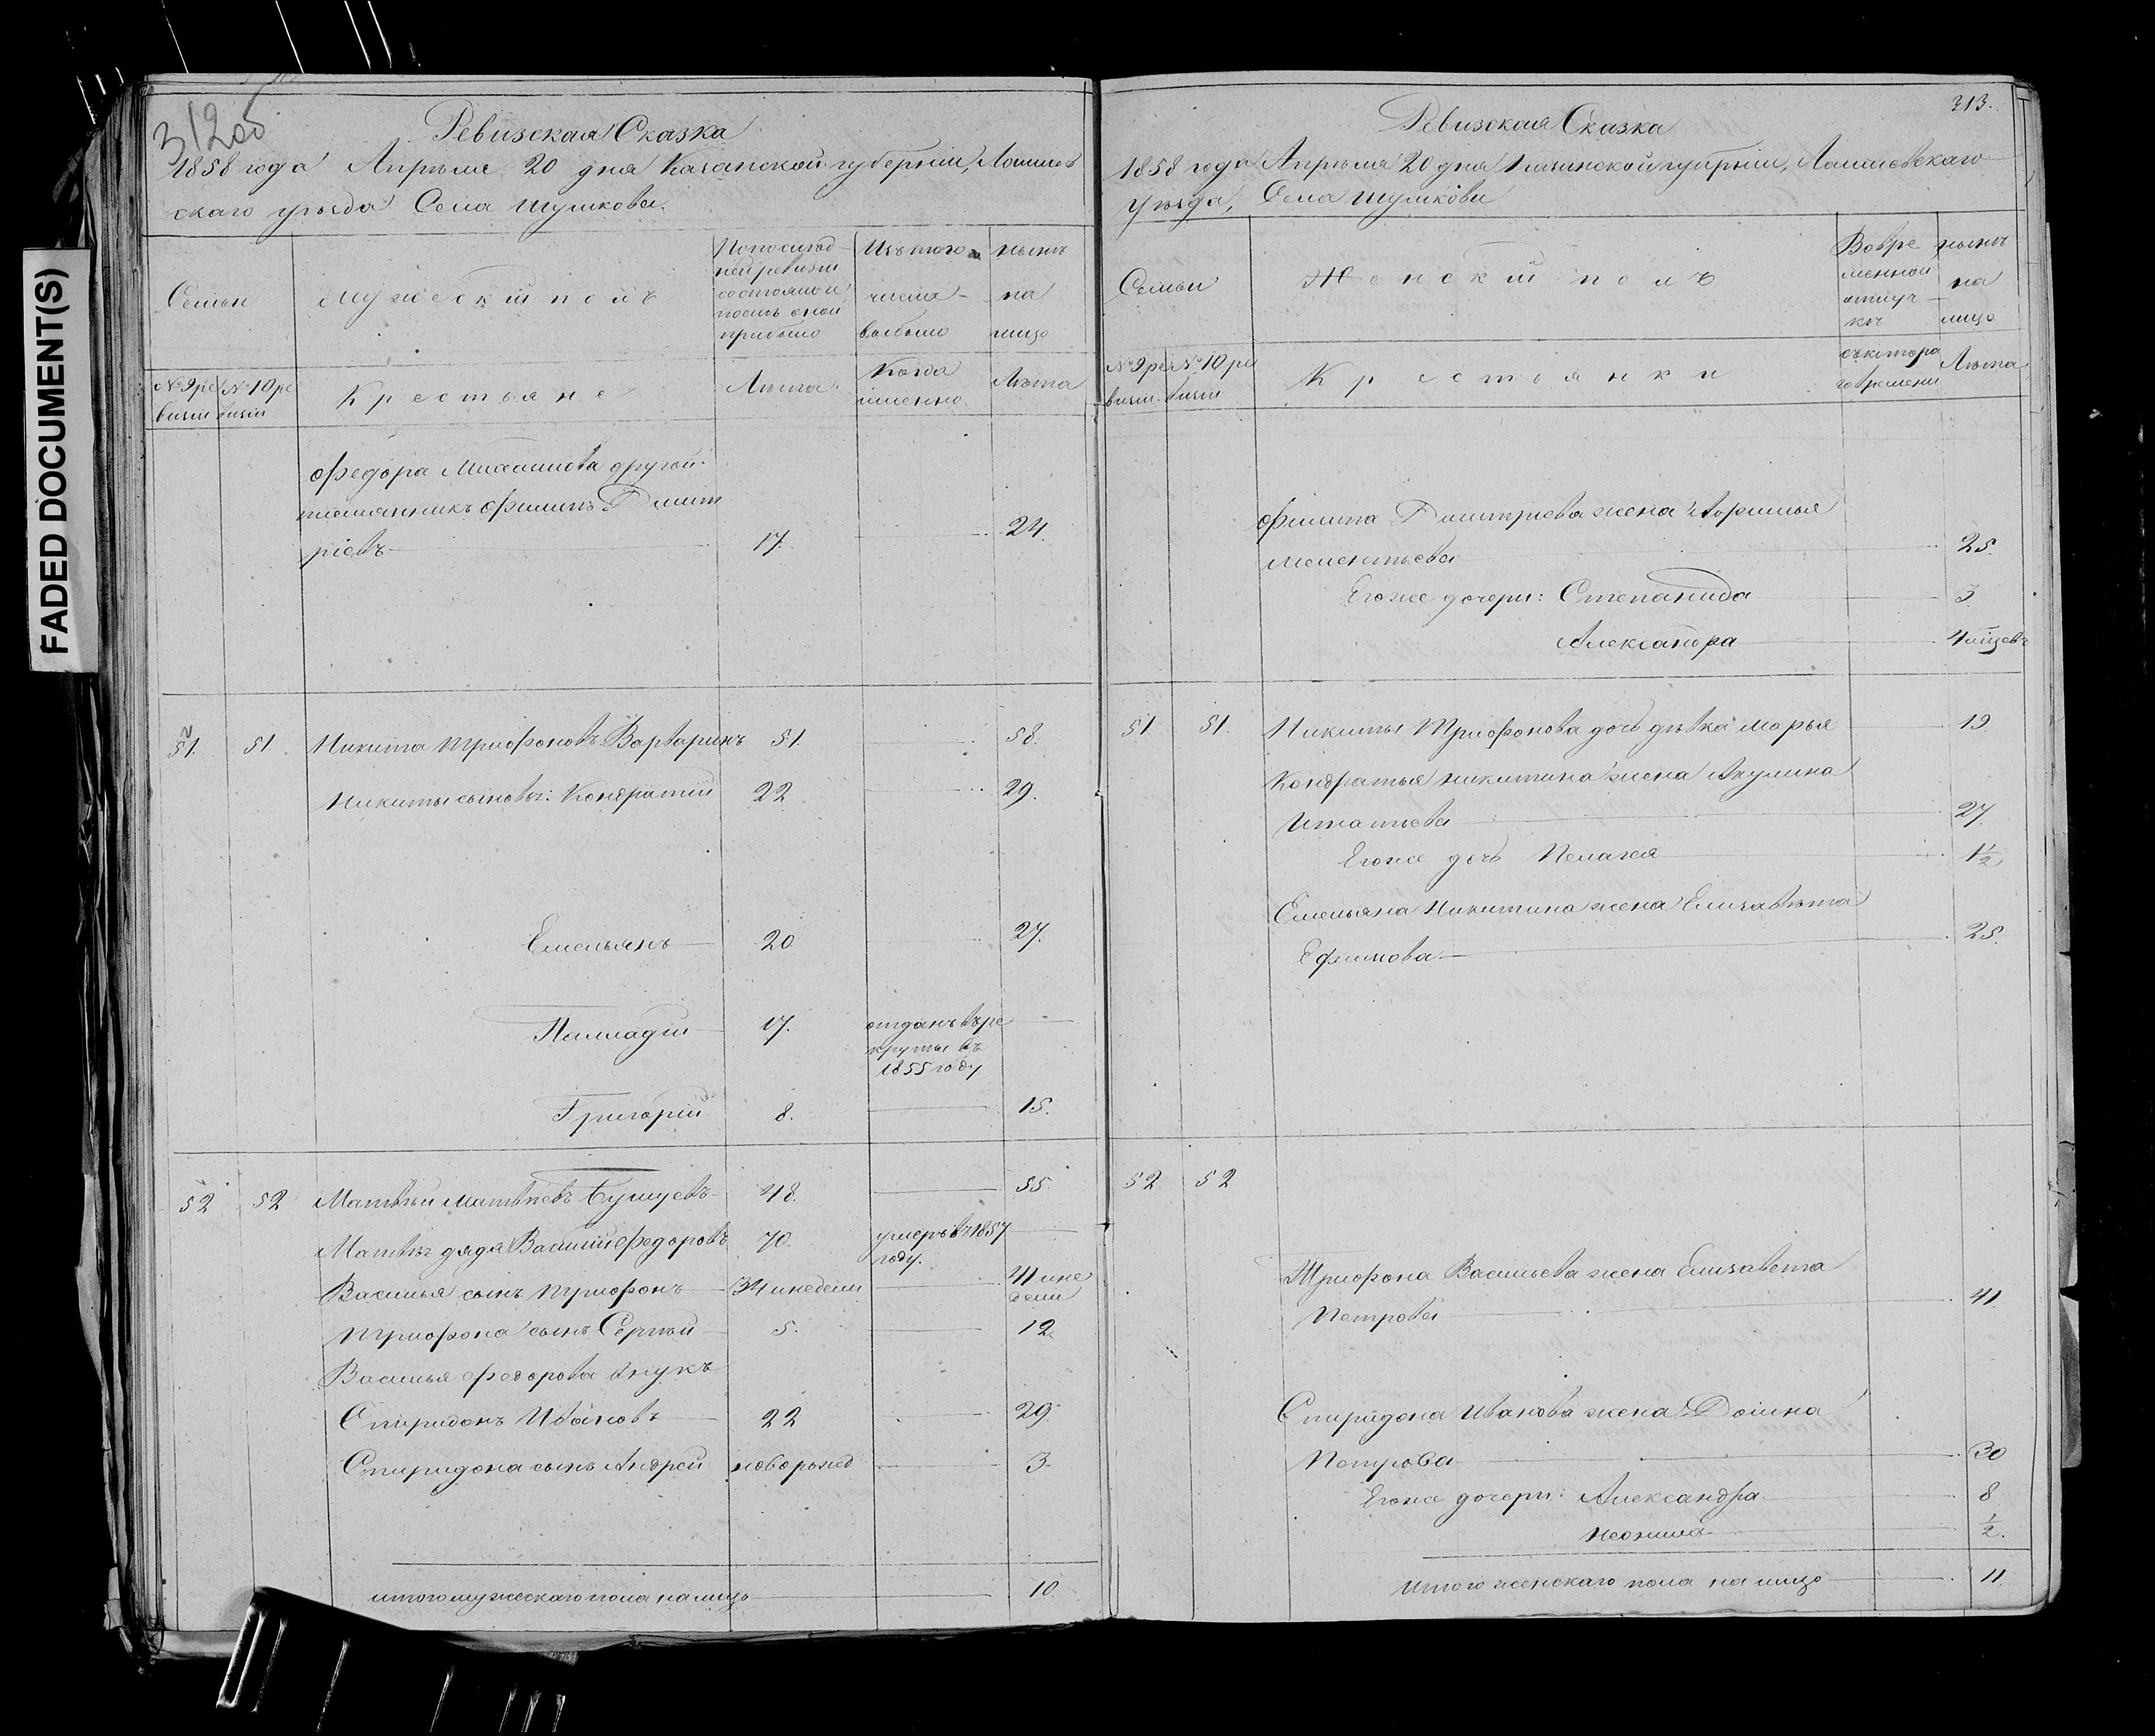 FADED DOCUMENT(S)
312об
Ревизская Сказка
1858 года Апрѣля 20 дня Казанской губерніи, Лаишев
скаго уѣзда Села Шумкова.
Семьи
Мужескій полъ
По послѣд
ней ревизіи
состояло и
послѣ оной
прибыло
Изъ того
числа
выбыло
нынѣ
на
лицо
№ 9 ре
визіи
№ 10 ре
визіи
Крестьяне
Лѣта
Когда
именно
Лѣта
Федора Михайлова другой
племянникъ Филипъ Дмит
ріевъ 17. 24.
51. 51. Никита Трифоновъ Варваринъ 51. 58.
Никиты сыновья: Кондратій 22 29.
Емельянъ 20 27.
Палладій 17. отданъ въ ре
круты въ
1855 году
Григорій 8. 15.
52 52 Матвѣй Матвѣевъ 48. 55.
Матвѣя дядя Василій Федоровъ 70. умеръ въ 1857
году.
Василья сынъ Трифонъ 34 недели 41 не
дели
Трифона сынъ Сергѣй 5. 12.
Василья Федорова внукъ
Спиридонъ Ивановъ 22 29.
Спиридона сынъ Андрей новорожд 3.
итого мужескаго пола на лицо 10.
313.
Ревизская Сказка
1858 года Апрѣля 20 дня Казанской губерніи, Лаишевскаго
уѣзда, Села Шумкова
Семьи
Женскій полъ
Во вре
менной
отлуч
кѣ
нынѣ
на
лицо
№ 9 ре
визіи.
№ 10 ре
визіи
Крестьянки
съ котора
го времени
Лѣта
Филипа Дмитріева жена
25.
Егоже дочери: Степанида 3.
Александра 4 мѣсяцевъ
51 51. Никиты Трифонова дочь дѣвка Марья 19.
Кондратья Никитина жена Акулина
Игнатьева 27.
Егоже дочь Пелагея 1½
Емельяна Никитина жена Елизавѣта
Ефимова 25.
52 52
Трифона Васильева жена Елизавета
Петрова 41.
Спиридона Иванова жена Домна
Петрова 30
Егоже дочери: Александра 8
½.
Итого женскаго пола на лицо 11.